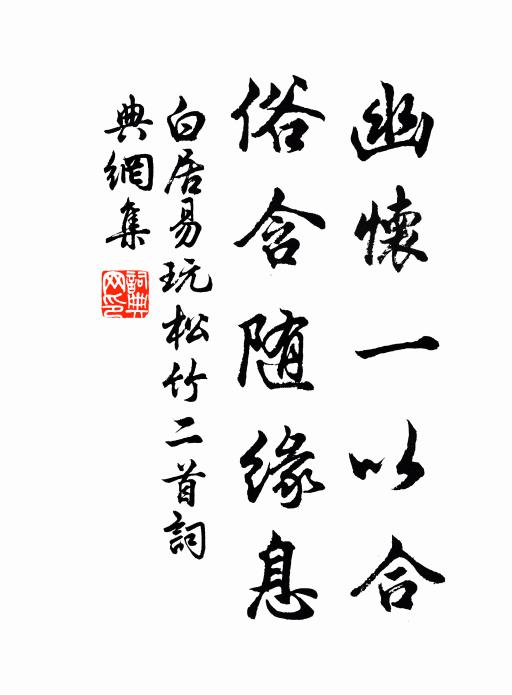 幽懷一以合
俗含随緣息
白居易玩松竹二首詞
典網集
詞典
网印